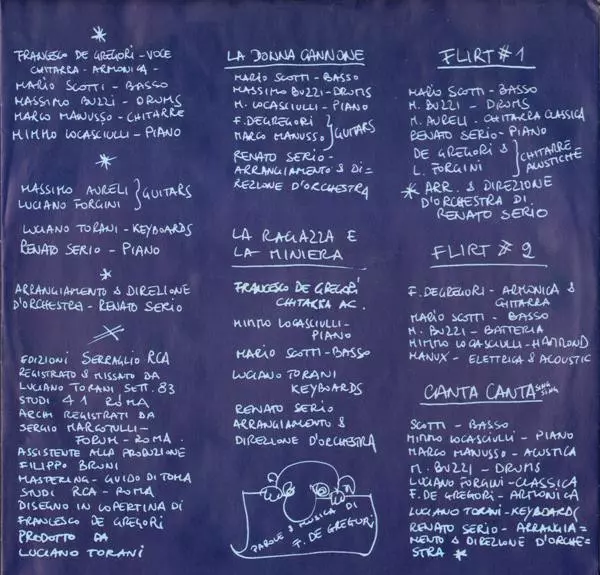 *
FRANCESCO DE GREGORI - VOCE
CHITARRA - ARMONICA -
MARIO SCOTTI - BASSO
MASSIMO BUZZI - DRUMS
MARCO MANUSSO - CHITARRE
MIMMO LOCASCIULLI - PIANO
*
MASSIMO AURELI
LUCIANO FORGINI } GUITARS
LUCIANO TORANI - KEYBOARDS
RENATO SERIO - PIANO
*
ARRANGIAMENTO & DIREZIONE
D'ORCHESTRA - RENATO SERIO
*
EDIZIONI SERRAGLIO RCA
REGISTRATO & MISSATO DA
LUCIANO TORANI SETT. 83
STUDI 41 ROMA
ARCHI REGISTRATI DA
SERGIO MARCOTULLI -
FORUM - ROMA.
ASSISTENTE ALLA PRODUZIONE
FILIPPO BRUNI
MASTERING - GUIDO DI TOMA
STUDI RCA - ROMA
DISEGNO IN COPERTINA DI
FRANCESCO DE GREGORI
PRODOTTO DA
LUCIANO TORANI
LA DONNA CANNONE
MARIO SCOTTI - BASSO
MASSIMO BUZZI - DRUMS
M. LOCASCIULLI - PIANO
F. DEGREGORI
MARCO MANUSSO } GUITARS
RENATO SERIO -
ARRANGIAMENTO & DI-
REZIONE D'ORCHESTRA
LA RAGAZZA E
LA MINIERA
FRANCESCO DE GREGORI
CHITARRA AC.
MIMMO LOCASCIULLI -
PIANO
MARIO SCOTTI - BASSO
LUCIANO TORANI
KEYBOARDS
RENATO SERIO
ARRANGIAMENTO &
DIREZIONE D'ORCHESTRA
PAROLE & MUSICA DI
F. DE GREGORI
FLIRT #1
MARIO SCOTTI - BASSO
M. BUZZI - DRUMS
M. AURELI - CHITARRA CLASSICA
RENATO SERIO - PIANO
DE GREGORI &
L. FORGINI } CHITARRE
ACUSTICHE
* ARR. & DIREZIONE
D'ORCHESTRA DI
RENATO SERIO
FLIRT #2
F. DEGREGORI - ARMONICA &
CHITARRA
MARIO SCOTTI - BASSO
M. BUZZI - BATTERIA
MIMMO LOCASCIULLI - HAMMOND
MANUX - ELETTRICA & ACOUSTIC
CANTA CANTA SING SING
SCOTTI - BASSO
MIMMO LOCASCIULLI - PIANO
MARCO MANUSSO - ACUSTICA
M. BUZZI - DRUMS
LUCIANO FORGINI - CLASSICA
F. DE GREGORI - ARMONICA
LUCIANO TORANI - KEYBOARDS
RENATO SERIO - ARRANGIA=
MENTO & DIREZIONE D'ORCHE-
STRA *